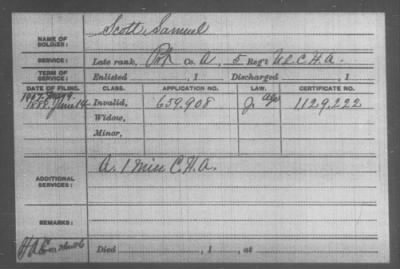 NAME OF SOLDIER: Scott Samuel
SERVICE: Late rank, Pvt Co. A, 5 Reg't U.S.C.H.A.
TERM OF SERVICE: Enlisted , 1 Discharged , 1
DATE OF FILING. CLASS. APPLICATION NO. LAW. CERTIFICATE NO.
1888. June 14 Invalid, 659,908 J. Age 1129,222
Widow,
Minor,
ADDITIONAL SERVICES: A. 1 Miss C.H.A.
REMARKS:
Died , 1 , at